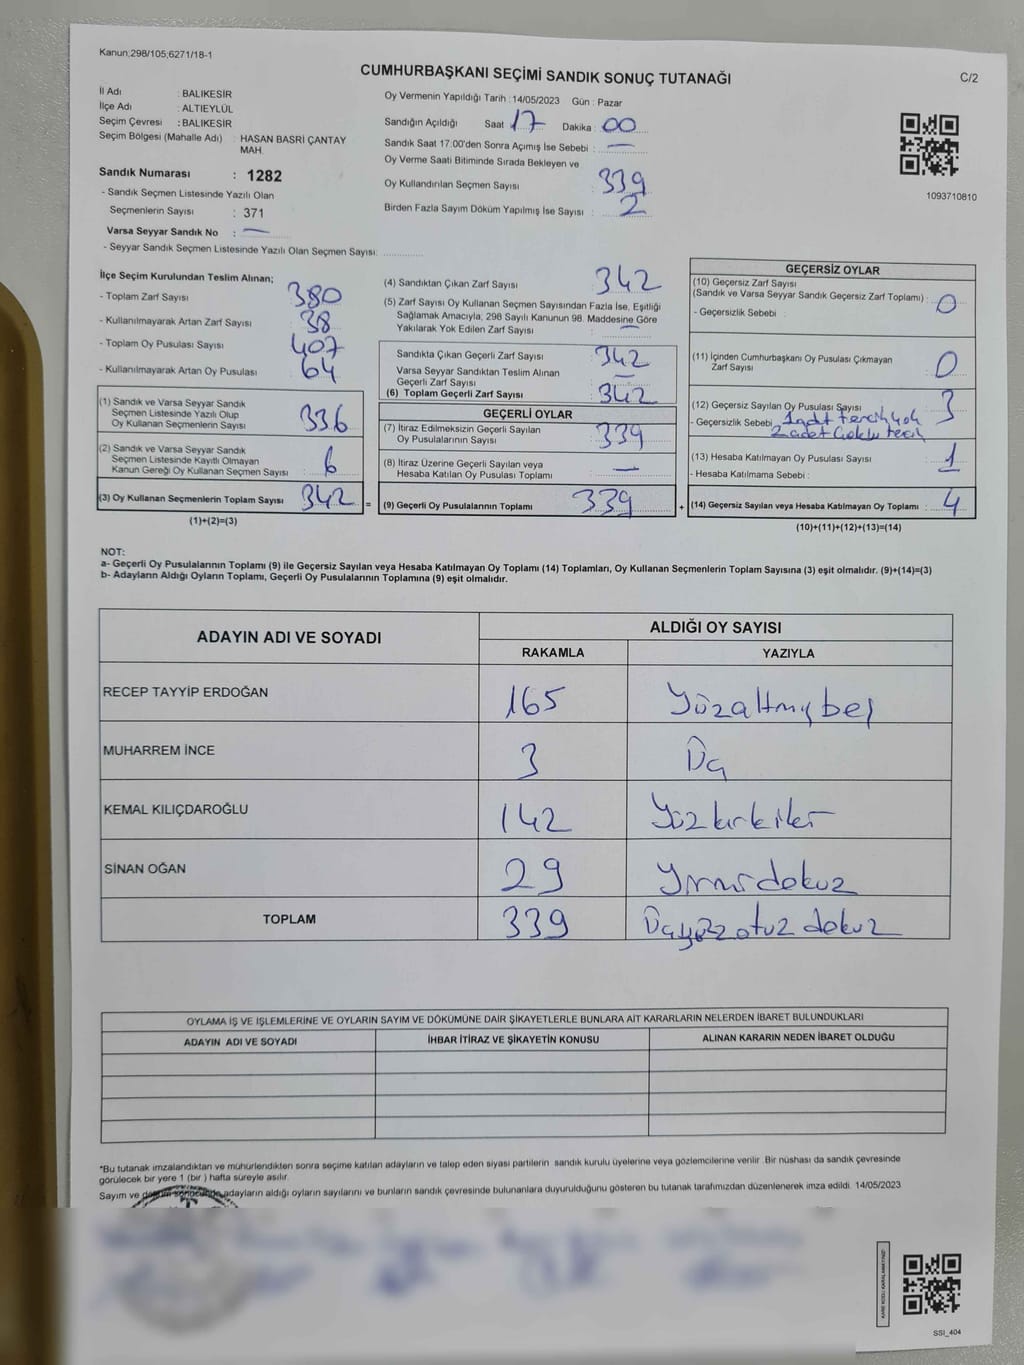 Kanun;298/105;6271/18-1
CUMHURBAŞKANI SEÇİMİ SANDIK SONUÇ TUTANAĞI
C/2
İl Adı : BALIKESİR
İlçe Adı : ALTIEYLÜL
Seçim Çevresi : BALIKESİR
Seçim Bölgesi (Mahalle Adı) : HASAN BASRİ ÇANTAY
MAH.
Sandık Numarası : 1282
- Sandık Seçmen Listesinde Yazılı Olan
Seçmenlerin Sayısı : 371
Varsa Seyyar Sandık No : —
- Seyyar Sandık Seçmen Listesinde Yazılı Olan Seçmen Sayısı:
Oy Vermenin Yapıldığı Tarih : 14/05/2023 Gün : Pazar
Sandığın Açıldığı Saat 17 Dakika : 00
Sandık Saat 17:00'den Sonra Açımış İse Sebebi : —
Oy Verme Saati Bitiminde Sırada Bekleyen ve
Oy Kullandırılan Seçmen Sayısı : 339
Birden Fazla Sayım Döküm Yapılmış İse Sayısı : 2
1093710810
İlçe Seçim Kurulundan Teslim Alınan;
- Toplam Zarf Sayısı : 380
- Kullanılmayarak Artan Zarf Sayısı : 38
- Toplam Oy Pusulası Sayısı : 407
- Kullanılmayarak Artan Oy Pusulası : 64
(1) Sandık ve Varsa Seyyar Sandık
Seçmen Listesinde Yazılı Olup
Oy Kullanan Seçmenlerin Sayısı : 336
(2) Sandık ve Varsa Seyyar Sandık
Seçmen Listesinde Kayıtlı Olmayan
Kanun Gereği Oy Kullanan Seçmen Sayısı : 6
(3) Oy Kullanan Seçmenlerin Toplam Sayısı : 342 =
(1)+(2)=(3)
(4) Sandıktan Çıkan Zarf Sayısı : 342
(5) Zarf Sayısı Oy Kullanan Seçmen Sayısından Fazla İse, Eşitliği
Sağlamak Amacıyla; 298 Sayılı Kanunun 98. Maddesine Göre
Yakılarak Yok Edilen Zarf Sayısı : —
Sandıkta Çıkan Geçerli Zarf Sayısı : 342
Varsa Seyyar Sandıktan Teslim Alınan
Geçerli Zarf Sayısı : —
(6) Toplam Geçerli Zarf Sayısı : 342
GEÇERLİ OYLAR
(7) İtiraz Edilmeksizin Geçerli Sayılan
Oy Pusulalarının Sayısı : 339
(8) İtiraz Üzerine Geçerli Sayılan veya
Hesaba Katılan Oy Pusulası Toplamı : —
(9) Geçerli Oy Pusulalarının Toplamı : 339 +
GEÇERSİZ OYLAR
(10) Geçersiz Zarf Sayısı
(Sandık ve Varsa Seyyar Sandık Geçersiz Zarf Toplamı) : 0
- Geçersizlik Sebebi :
(11) İçinden Cumhurbaşkanı Oy Pusulası Çıkmayan
Zarf Sayısı : 0
(12) Geçersiz Sayılan Oy Pusulası Sayısı : 3
- Geçersizlik Sebebi : 1 adet tercih yok
2 adet Çoklu tercih
(13) Hesaba Katılmayan Oy Pusulası Sayısı : 1
- Hesaba Katılmama Sebebi :
(14) Geçersiz Sayılan veya Hesaba Katılmayan Oy Toplamı : 4
(10)+(11)+(12)+(13)=(14)
NOT:
a- Geçerli Oy Pusulalarının Toplamı (9) ile Geçersiz Sayılan veya Hesaba Katılmayan Oy Toplamı (14) Toplamları, Oy Kullanan Seçmenlerin Toplam Sayısına (3) eşit olmalıdır. (9)+(14)=(3)
b- Adayların Aldığı Oyların Toplamı, Geçerli Oy Pusulalarının Toplamına (9) eşit olmalıdır.
ADAYIN ADI VE SOYADI ALDIĞI OY SAYISI
RAKAMLA YAZIYLA
RECEP TAYYİP ERDOĞAN 165 Yüzaltmışbeş
MUHARREM İNCE 3 Üç
KEMAL KILIÇDAROĞLU 142 Yüzkırkiki
SİNAN OĞAN 29 Yirmidokuz
TOPLAM 339 Üçyüzotuz dokuz
OYLAMA İŞ VE İŞLEMLERİNE VE OYLARIN SAYIM VE DÖKÜMÜNE DAİR ŞİKAYETLERLE BUNLARA AİT KARARLARIN NELERDEN İBARET BULUNDUKLARI
ADAYIN ADI VE SOYADI İHBAR İTİRAZ VE ŞİKAYETİN KONUSU ALINAN KARARIN NEDEN İBARET OLDUĞU
*Bu tutanak imzalandıktan ve mühürlendikten sonra seçime katılan adayların ve talep eden siyasi partilerin sandık kurulu üyelerine veya gözlemcilerine verilir. Bir nüshası da sandık çevresinde
görülecek bir yere 1 (bir ) hafta süreyle asılır.
Sayım ve döküm sonucunda adayların aldığı oyların sayılarını ve bunların sandık çevresinde bulunanlara duyurulduğunu gösteren bu tutanak tarafımızdan düzenlenerek imza edildi. 14/05/2023
KARE KODU KARALAMAYINIZ!
SSI_404